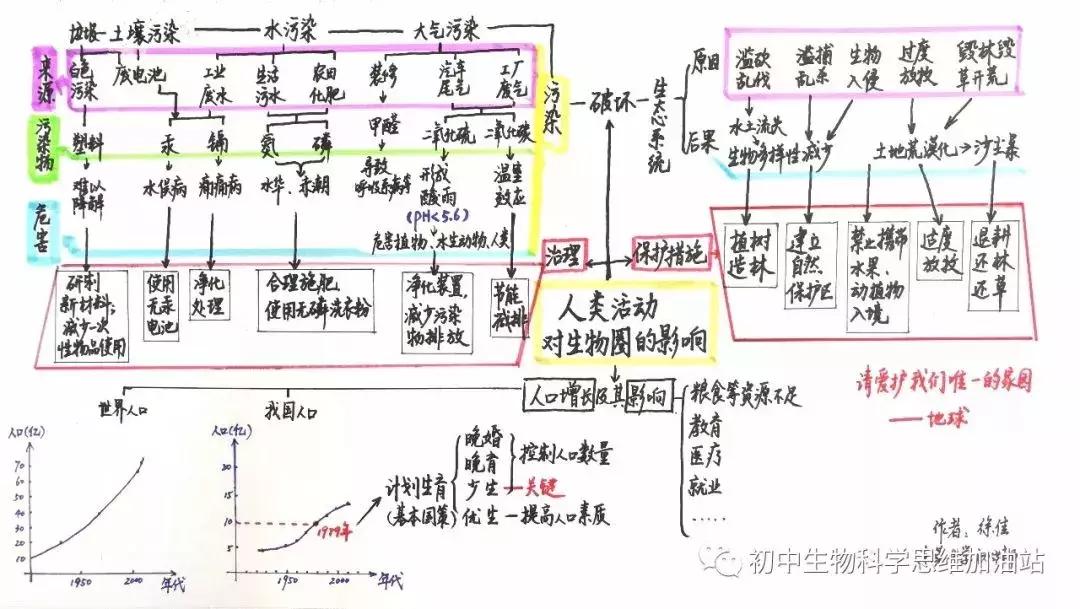 垃圾 土壤污染
水污染
大气污染
来源
白色污染
废电池
工业废水
生活污水
农田化肥
装修
汽车尾气
工厂废气
污染
污染物
塑料
汞
镉
氮
磷
甲醛
二氧化硫
二氧化碳
危害
难以降解
水俣病
痛痛病
水华、赤潮
导致呼吸系病等
形成酸雨
(PH<5.6)
温室效应
危害植物、水生动物、人类
研制新材料;减少一次性物品使用
使用无汞电池
净化处理
合理施肥、使用无磷洗衣粉
净化装置,减少污染物排放
节能减排
治理
保护措施
破坏
生态系统
原因
滥砍乱伐
滥捕乱杀
生物入侵
过度放牧
毁林毁草开荒
后果
水土流失
生物多样性减少
土地荒漠化
沙尘暴
植树造林
建立自然保护区
禁止携带水果、动植物入境
适度放牧
退耕还林还草
人类活动
对生物圈的影响
人口增长及其影响
粮食等资源不足
教育
医疗
就业
......
请爱护我们唯一的家园
——地球
世界人口
人口(亿)
70
60
50
40
30
20
10
1950
2000
年代
我国人口
人口(亿)
20
15
10
5
1979年
1950
2000
年代
计划生育
(基本国策)
晚婚
晚育
少生—关键
控制人口数量
优生—提高人口素质
作者:徐佳
初中生物科学思维加油站